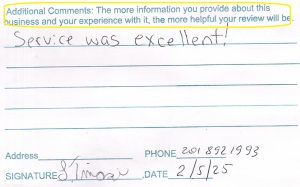 Additional Comments: The more information you provide about this
business and your experience with it, the more helpful your review will be
Service was excellent!
Address PHONE 201 892 1993
SIGNATURE DATE 2/5/25